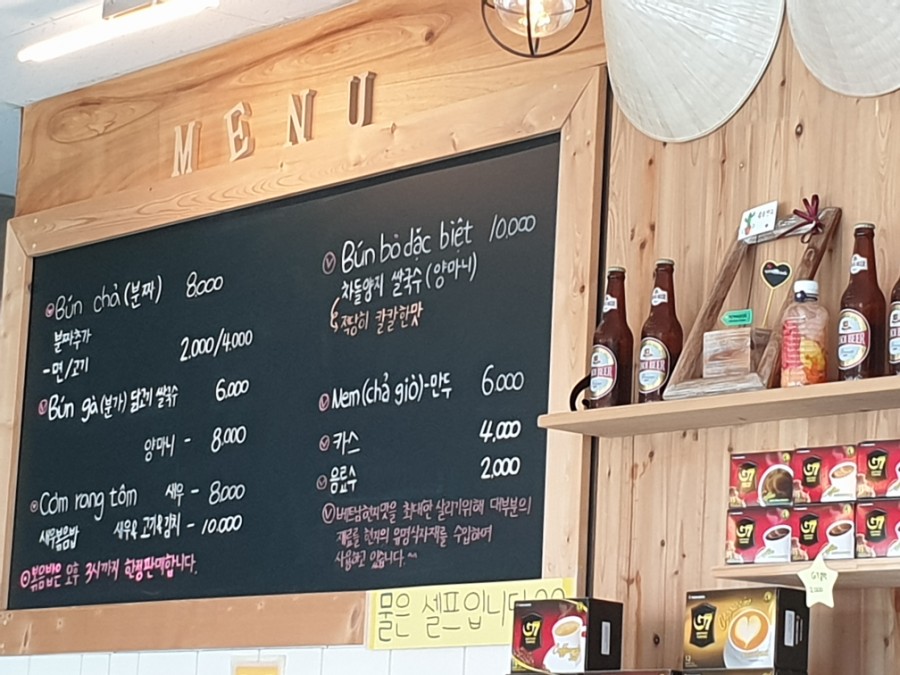 MENU
Bún chả (분짜) 8,000
분짜추가
- 면/고기 2,000/4,000
Bún gà (분가) 닭고기 쌀국수 6,000
양마니 - 8,000
Cơm rang tôm 새우 - 8,000
새우볶음밥 새우 & 고기 & 김치 - 10,000
볶음밥은 오후 3시까지 한정판매합니다.
Bún bò đặc biệt 10,000
차돌양지 쌀국수 (양마니)
적당히 칼칼한맛
Nem (chả giò) - 만두 6,000
카스 4,000
음료수 2,000
베트남현지맛을 최대한 살리기위해 대부분의
재료를 현지의 유명식자재를 수입하여
사용하고 있습니다. ^^
물은 셀프입니다
BEER
G7
G7
G7
G7
G7
G7
G7
G7